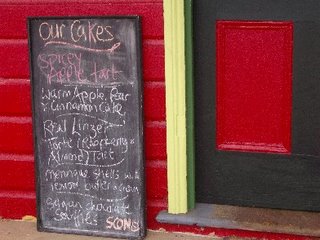 Our Cakes
Spicey
Apple tart
Warm Apple, Pear
& Cinnamon Cake
Real Linzer
Torte (Raspberry &
Almond) Tart
Meringue Shells with
lemon
chocolate
Souffles SCONS